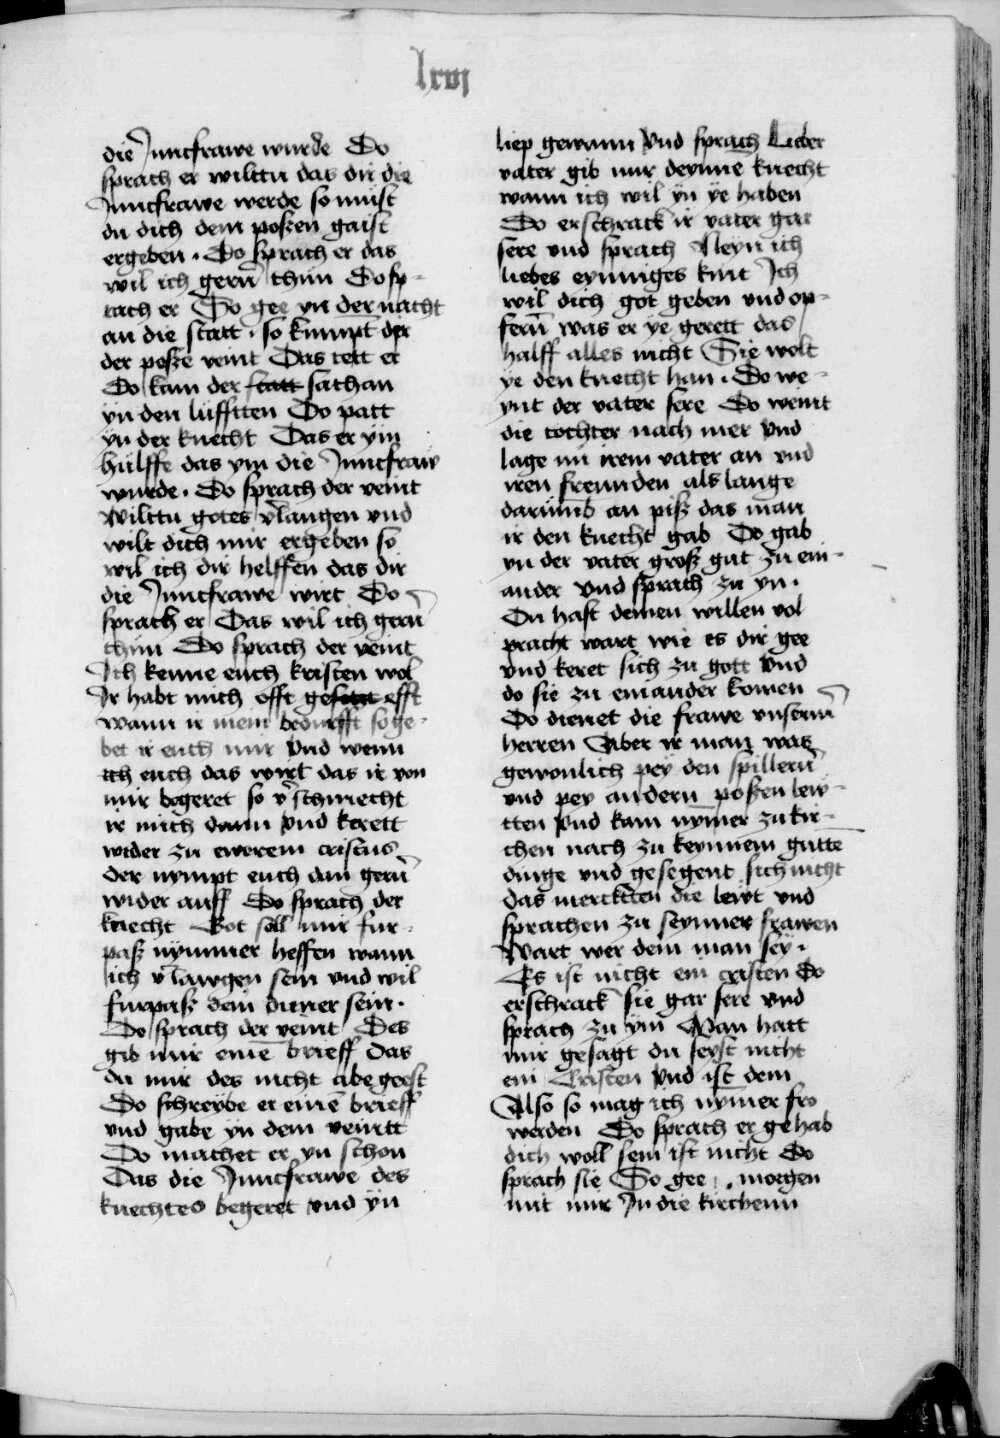 lxvj
die Junckfrawe wurde Do
sprach er wilttu das dir die
Junckfrawe werde so must
du dich dem poßen gaist
ergeben . Do sprach er das
wil ich gern̄ thun Do sp-
rach er So gee yn der nacht
an die statt . so kumpt der
der poße veint Das tett er
Do kam der statt sathan
yn den lüfftten Do patt
yn der knecht Das er ym
hülffe das ym die Junckfraw
wurde . Do sprach der veint
Wilttu gotes v̄laugen vnd
wilt dich mir ergeben so
wil ich dir helffen das dir
die Junckfrawe wirt Do
sprach er Das wil ich gern̄
thun Do sprach der veint
Ich kenne euch kristen wol
Ir habt mich offt offt
wann ir mein bedurfft so ge-
bet ir euch mir vnd wenn
ich euch das wirt das ir von
mir begeret so v̄schmecht
ir mich dann vnd kerett
wider zu ewerem cristus
der nympt euch dan gern̄
wider auff Do sprach der
knecht Got soll mir fur-
paß nymmer heffen wann
ich v̄lawgen sein vnd wil
furpaß dein diener sein .
Do sprach der veint Des
gib mir einē brieff Das
du mir des nicht abegeest
Do schreybe er einē brieff
vnd gabe yn dem veintt
Do machet er yn schon
Das die Junckfrawe des
knechtes begeret vnd yn
liep gewann vnd sprach Lieber
vater gib mir deynne knecht
wann ich wil yn ye haben
Do erschrack ir vater gar
sere vnd sprach Neyn ich
liebes eyniges kint Ich
wil dich got geben vnd op-
fern̄ was er ye gerett das
halff alles nicht Sie wolt
ye den knecht han . Do we-
ynt der vater sere Do weint
die tochter noch mer vnd
lage nu irem vater an vnd
iren freunden als lange
darumb an piß das man
ir den knecht gab Do gab
yn der vater groß gut zu ein-
ander vnd sprach zu yn .
Du hast deinen willen vol
pracht wart wie es dir gee
vnd keret sich zu gott vnd
do sie zu einander komen
Do dienet die frawe vnserm
herren Aber ir man was
gewonlich pey den spillern̄
vnd pey andern poßen lew-
tten vnd kam nymer zu kir-
chen nach zu keynnem gutte
dinge vnd gesegent sich nicht
das merckten die lewt vnd
sprachen zu seynner frawen
Wart wer dein man sey .
Es ist nicht ein cristen Do
erschrack sie gar sere vnd
sprach zu ym Man hatt
mir gesagt du seyst nicht
ein Cristen vnd ist dem
Also so mag ich nymer fro
werden Do sprach er gehab
dich woll sein ist nicht Do
sprach sie So gee . morgen
mit mir In die kirchenn